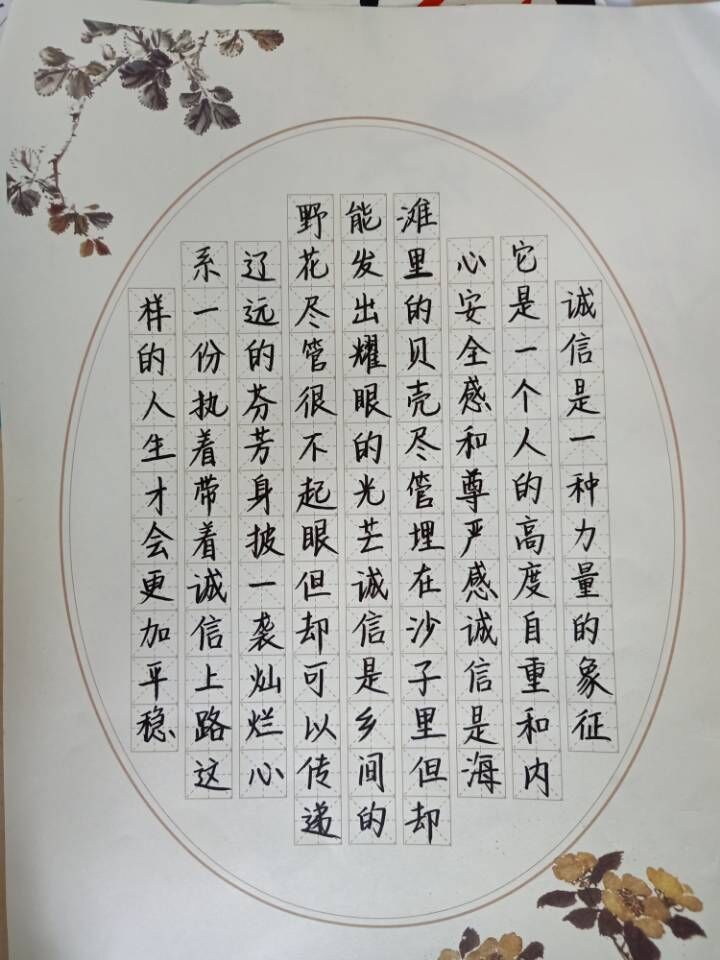 诚信是一种力量的象征
它是一个人的高度自重和内
心安全感和尊严感诚信是海
滩里的贝壳尽管埋在沙子里但却
能发出耀眼的光芒诚信是乡间的
野花尽管很不起眼但却可以传递
辽远的芬芳身披一袭灿烂心
系一份执着带着诚信上路这
样的人生才会更加平稳